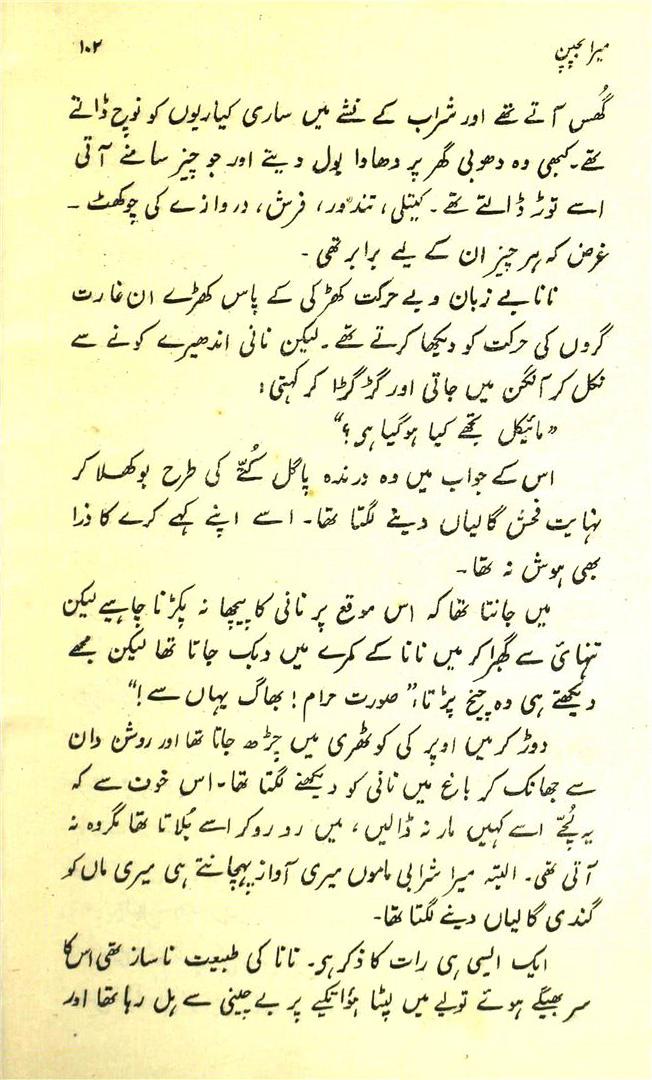 میرا بچپن
۱۰۲
گُھس آتے تھے اور شراب کے نشے میں ساری کیاریوں کو نوچ ڈالتے
تھے۔ کبھی وہ دھوبی گھر پر دھاوا بول دیتے اور جو چیز سامنے آتی
اسے توڑ ڈالتے تھے۔ کیتلی، تندور، فرش، دروازے کی چوکھٹ ۔
غرض کہ ہر چیز ان کے لیے برابر تھی ۔
نانا بے زبان و بے حرکت کھڑکی کے پاس کھڑے ان غارت
گروں کی حرکت کو دیکھا کرتے تھے ۔ لیکن نانی اندھیرے کونے سے
نکل کر آنگن میں جاتی اور گڑگڑا کر کہتی :
"مائیکل تجھے کیا ہوگیا ہی ؟"
اس کے جواب میں وہ درندہ پاگل کُتّے کی طرح بوکھلا کر
نہایت فحش گالیاں دینے لگتا تھا۔ اسے اپنے کہے کرے کا ذرا
بھی ہوش نہ تھا ۔
میں جانتا تھا کہ اس موقع پر نانی کا پیچھا نہ پکڑنا چاہیے لیکن
تنہائی سے گھبرا کر میں نانا کے کمرے میں دبک جاتا تھا لیکن مجھے
دیکھتے ہی وہ چیخ پڑتا، "صورت حرام ! بھاگ یہاں سے !"
دوڑ کر میں اوپر کی کوٹھری میں چڑھ جاتا تھا اور روشن دان
سے جھانک کر باغ میں نانی کو دیکھنے لگتا تھا۔ اس خوف سے کہ
یہ لُچّے اسے کہیں مار نہ ڈالیں، میں رو رو کر اسے بُلاتا تھا مگر وہ نہ
آتی تھی۔ البتہ میرا شرابی ماموں میری آواز پہچانتے ہی میری ماں کو
گندی گالیاں دینے لگتا تھا۔
ایک ایسی ہی رات کا ذکر ہی۔ نانا کی طبیعت ناساز تھی اس کا
سر بھیگے ہوئے تولیے میں لپٹا ہؤا تکیے پر بے چینی سے ہل رہا تھا اور